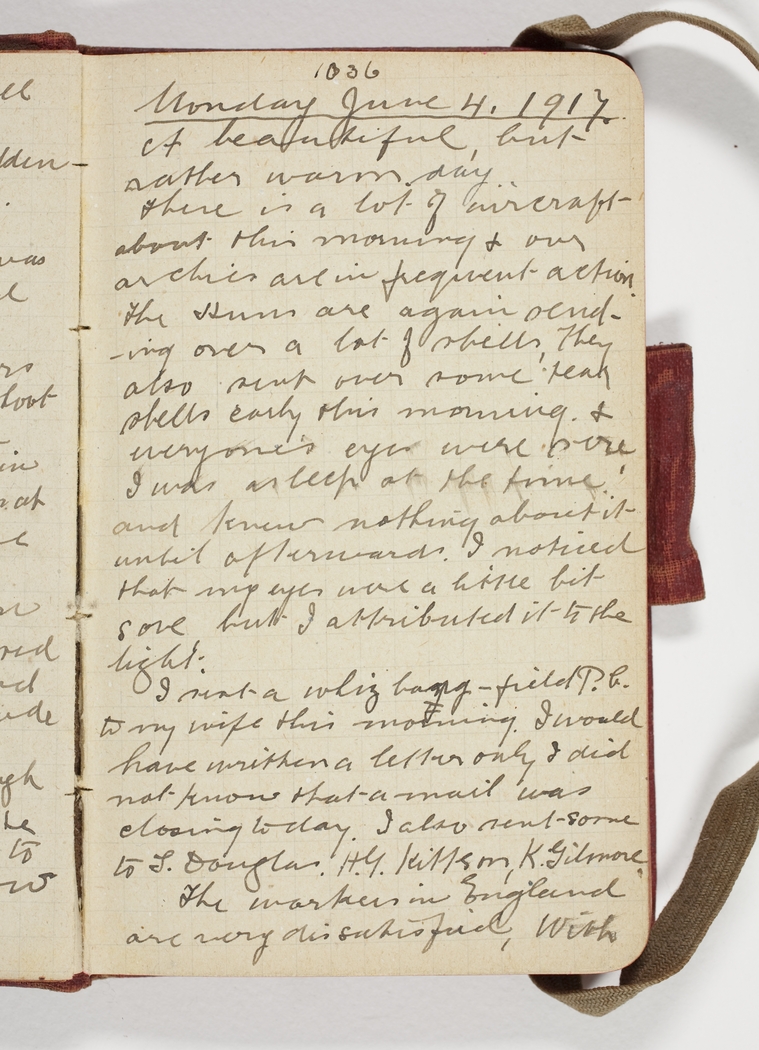 1036
Monday June 4. 1917.
A beautiful, but
rather warm day
there is a lot of aircraft
about this morning & our
archies are in frequent action.
The Huns are again send-
-ing over a lot of shells, They
also sent over some tear
shells early this morning. &
everyone's eyes were sore
I was asleep at the time,
and knew nothing about it
until afterwards. I noticed
that my eyes were a little bit
sore but I attributed it to the
light.
I sent a whiz bang - field P.C.
to my wife this morning. I would
have written a letter only I did
not know that a mail was
closing today. I also sent some
to S. Douglas, H.G. K. Gilmore.
The workers in England
are very dissatisfied, With
ell
dden-
was
rs
hoot
in
at
red
ade
gh
he
to